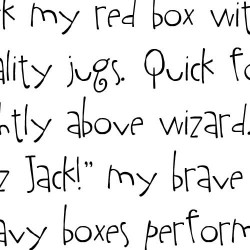 k my red box with
ality jugs. Quick fo
htly above wizard.
z Jack!" my brave
avy boxes perform